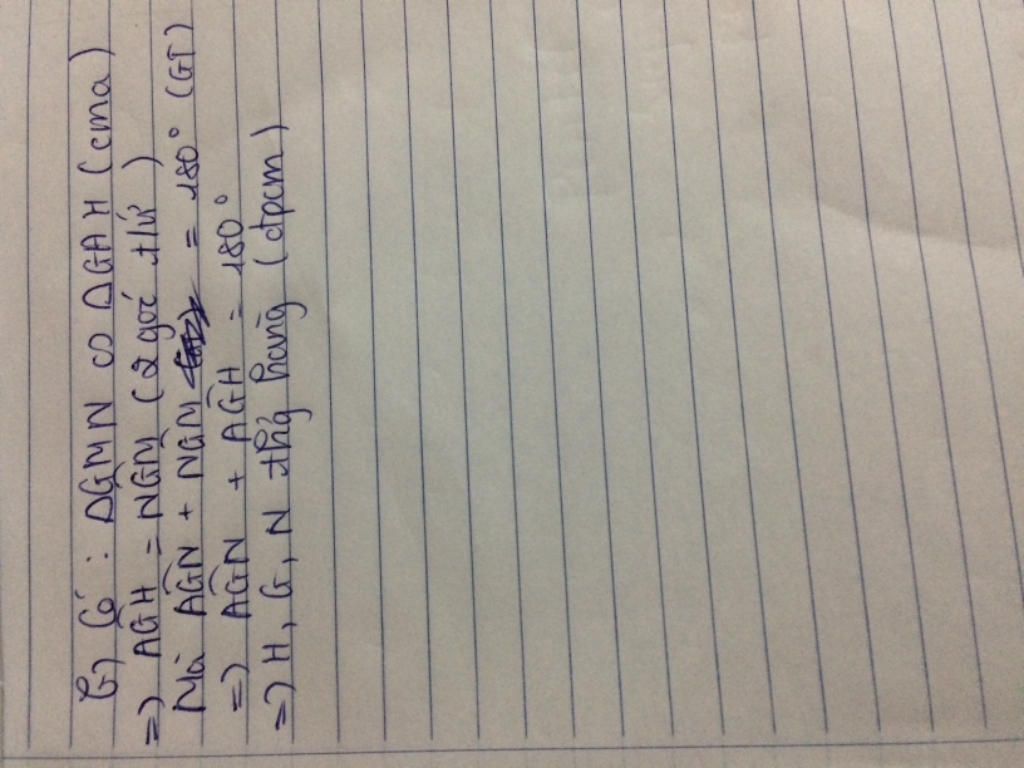 b) Có : ΔGMN ∽ ΔGAH (cma)
=) AĜH = NĜM (2 góc t/ứ)
Mà AĜN + NĜM = 180° (GT)
=) AĜN + AĜH = 180°
=) H, G, N thẳg hàng (đpcm)